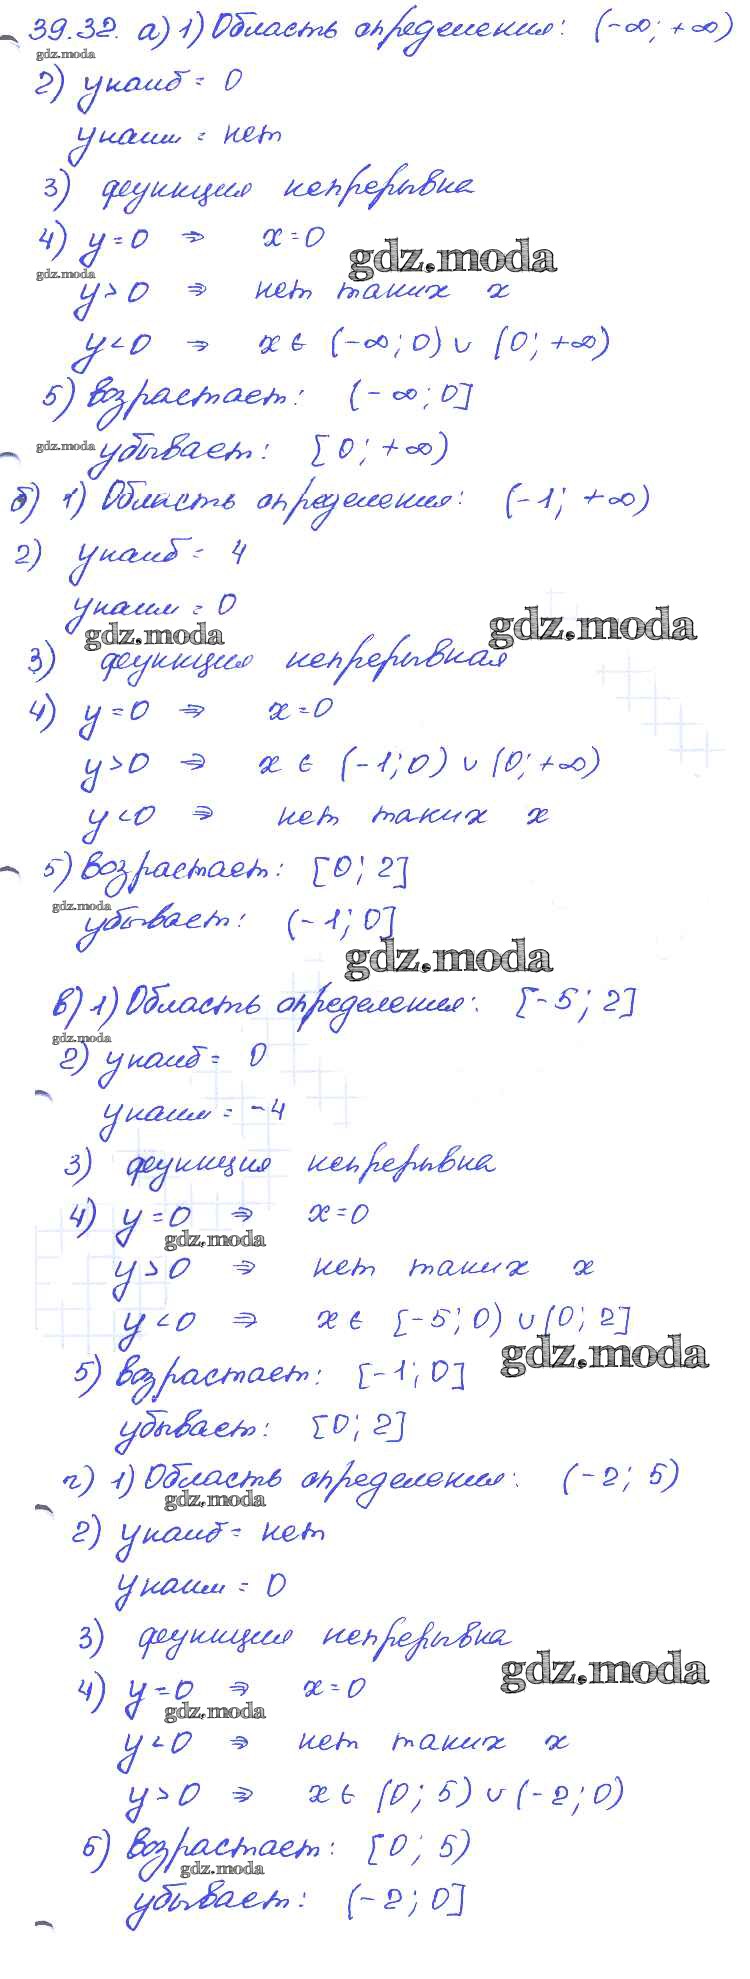 39.32. а) 1) Область определения: (-∞; +∞)
gdz.moda
2) yнаиб = 0
yнаим = нет
3) функция непрерывна
4) y=0 ⇒ x=0
gdz.moda
gdz.moda
y>0 ⇒ нет таких x
y<0 ⇒ x ∈ (-∞; 0) ∪ (0; +∞)
5) возрастает: (-∞; 0]
gdz.moda
убывает: [0; +∞)
б) 1) Область определения: (-1; +∞)
2) yнаиб = 4
yнаим = 0
gdz.moda
gdz.moda
3) функция непрерывная
4) y=0 ⇒ x=0
y>0 ⇒ x ∈ (-1; 0) ∪ (0; +∞)
y<0 ⇒ нет таких x
5) Возрастает: [0; 2]
gdz.moda
убывает: (-1; 0]
gdz.moda
в) 1) Область определения: [-5; 2]
gdz.moda
2) yнаиб = 0
yнаим = -4
3) функция непрерывна
4) y=0 ⇒ x=0
gdz.moda
y>0 ⇒ нет таких x
y<0 ⇒ x ∈ [-5; 0) ∪ (0; 2]
gdz.moda
5) возрастает: [-1; 0]
убывает: [0; 2]
г) 1) Область определения: (-2; 5)
gdz.moda
2) yнаиб = нет
yнаим = 0
3) функция непрерывна
gdz.moda
4) y=0 ⇒ x=0
gdz.moda
y<0 ⇒ нет таких x
y>0 ⇒ x ∈ (0; 5) ∪ (-2; 0)
5) возрастает: [0; 5)
gdz.moda
убывает: (-2; 0]